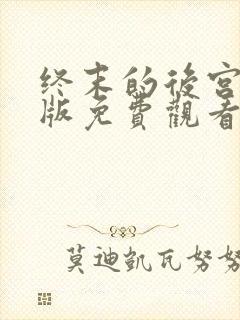 終末的後宮
版免費觀看
莫迪凱瓦努努